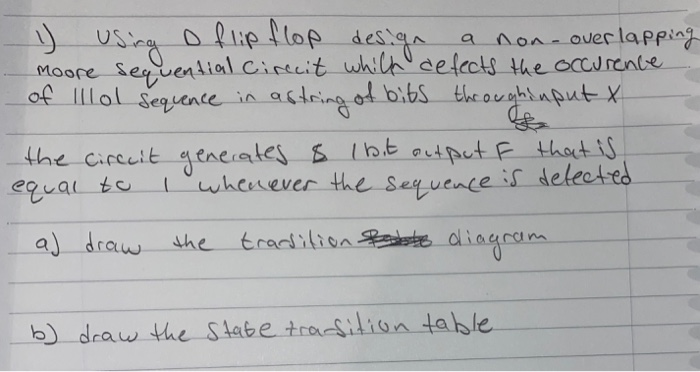 1) using D flip flop design a non-overlapping
Moore sequential circcit which defects the occurence
of 11101 sequence in astring of bits throughinput X
the circcit generates 1 bit output F that is
equal to 1 whenever the sequence is detected
a) draw the transition diagram
b) draw the state transition table